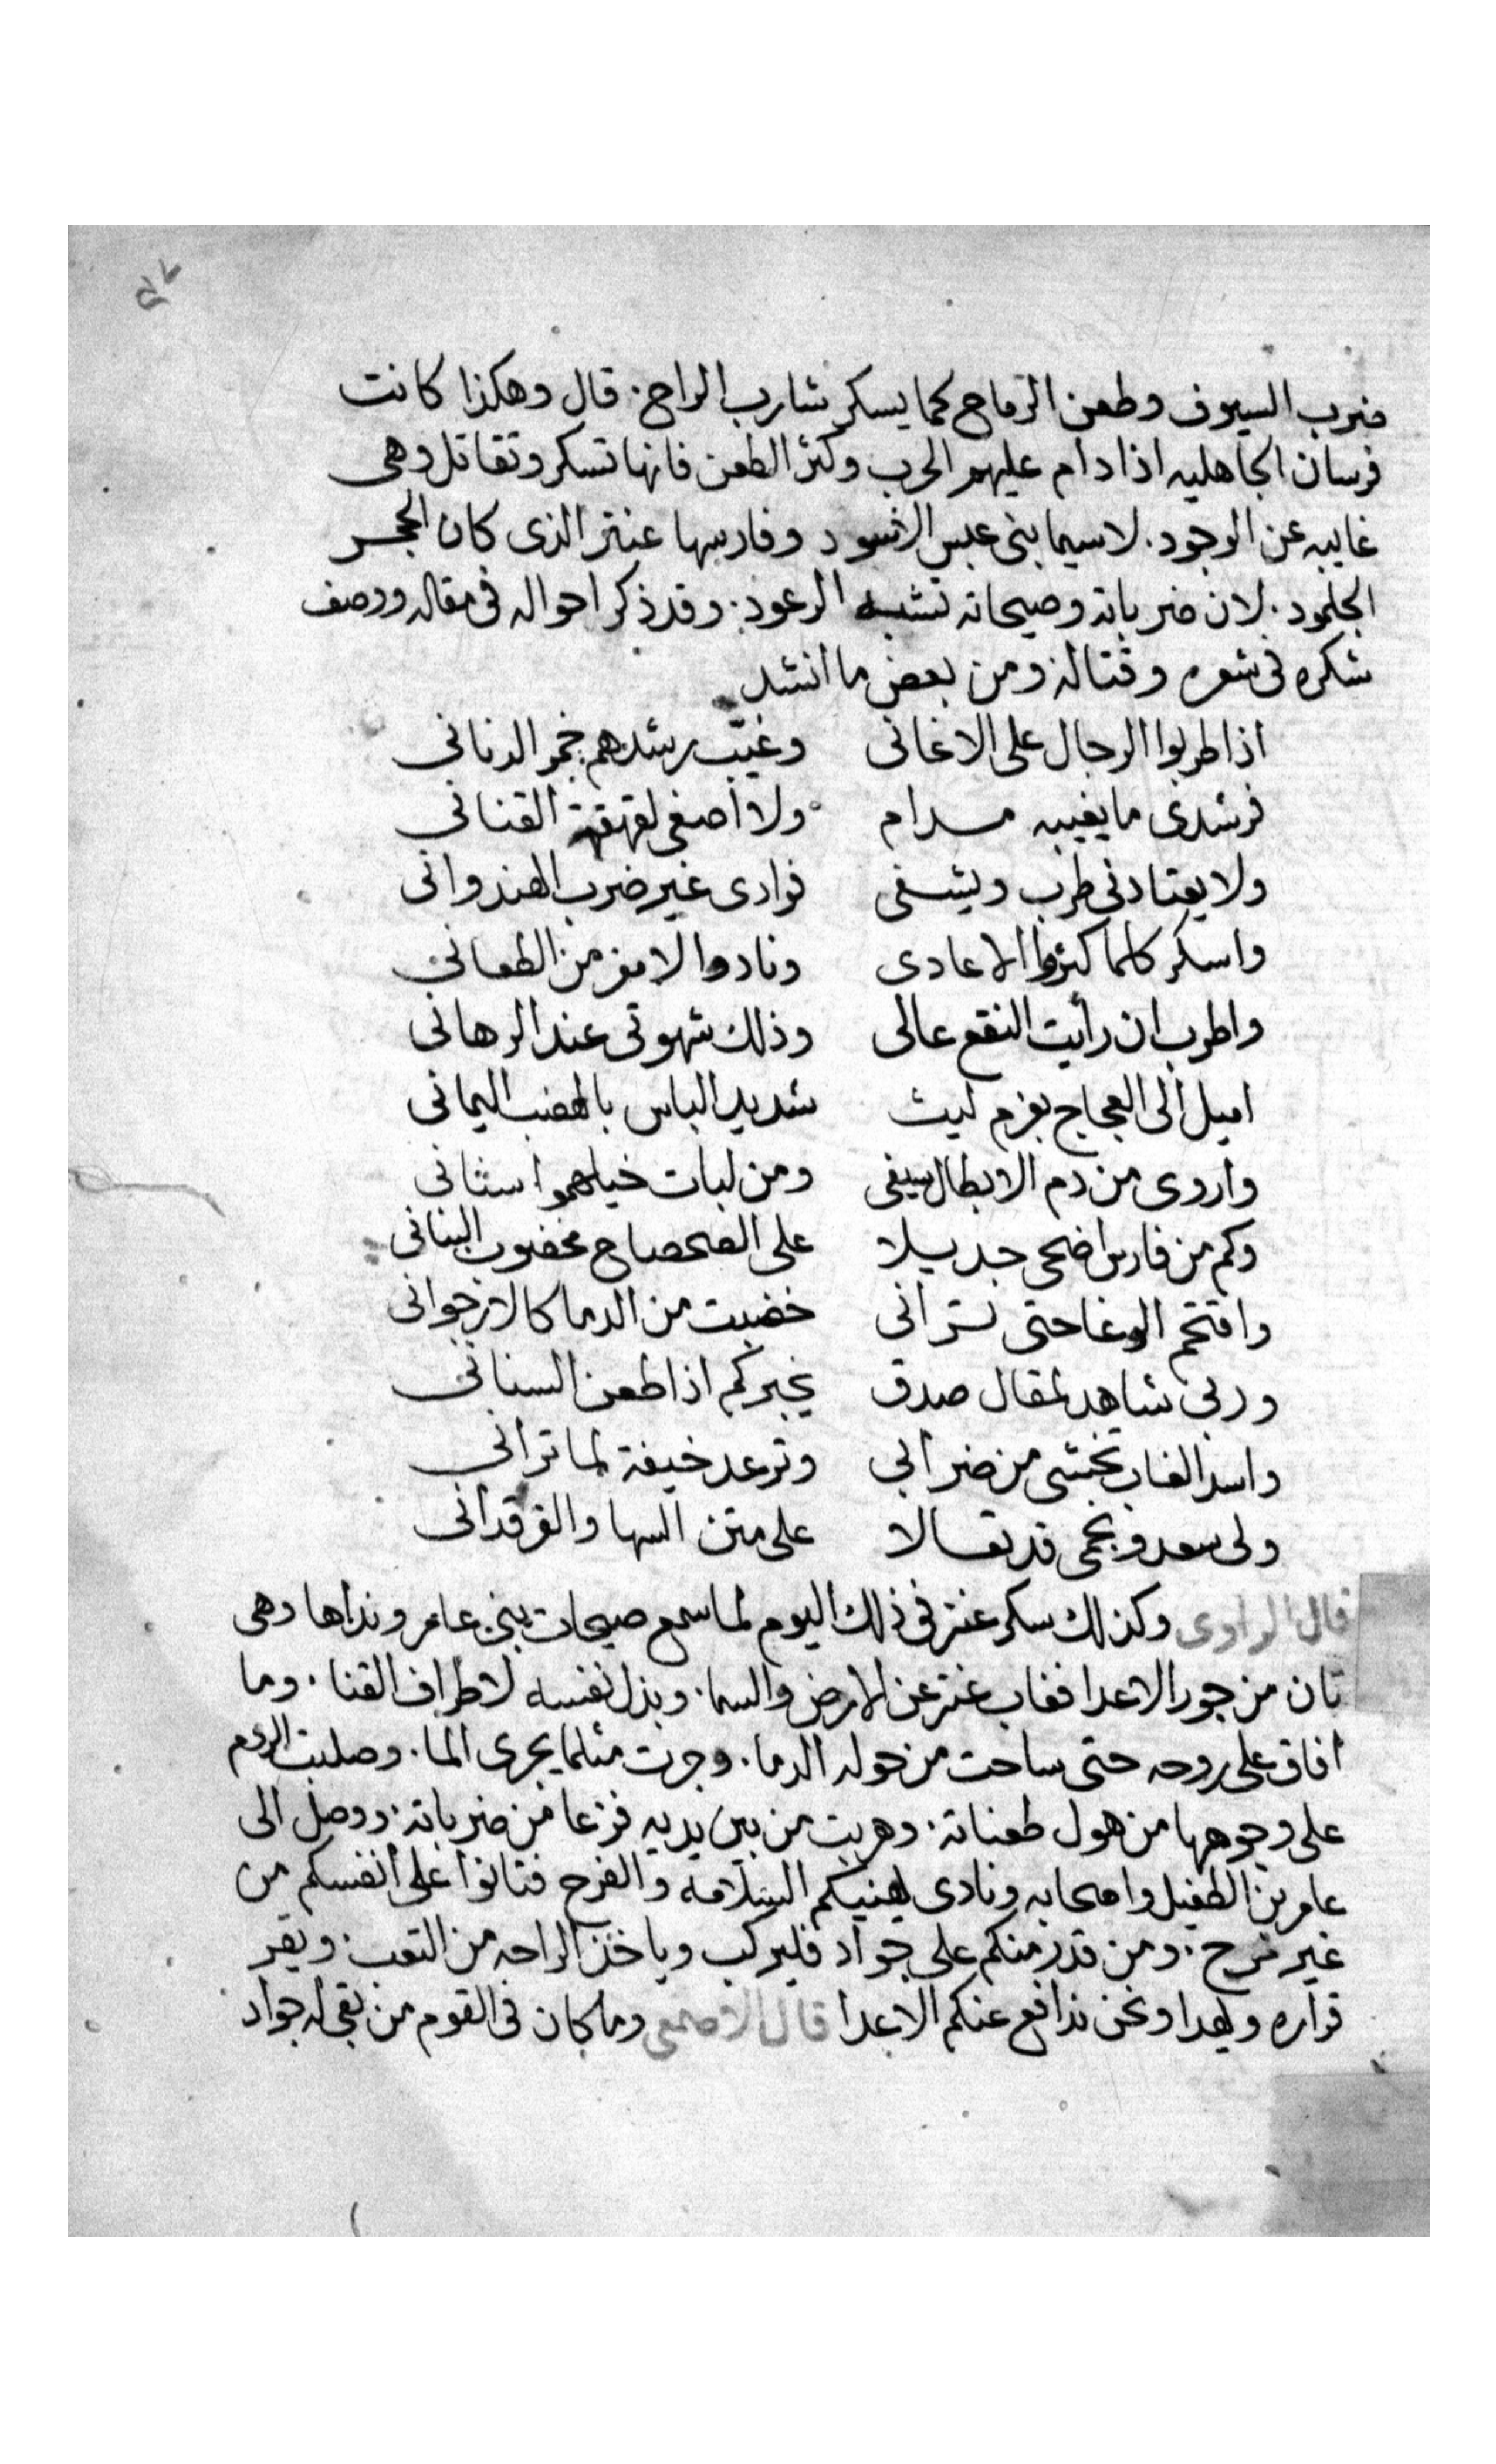 ضرب السيوف وطعن الرماح كما يسكر شارب الراح. قال وهكذا كانت
فرسان الجاهليه اذا دام عليهم الحرب وكثر الطعن فانها تسكر وتقاتل وهى
غايبه عن الوجود. لاسيما بنى عبس الاسود وفارسها عنتر الذى كان الحجر
الجلمود. لان ضرباته وصيحاته تشبه الرعود. وقد ذكر احواله فى مقاله ووصف
شكره فى شعره وقتاله ومن بعض ما انشد
اذا طربوا الرجال على الاغانى وغيّب رشدهم خمر الدنانى
فرشدى ما يغيبه مدام ولا اصغى لقهقهة القنانى
ولا يعتادنى طرب ويشفى فوادى غير ضرب الهندوانى
واسكر كلما كثروا الاعادى ونادوا لا مفر من الطعانى
واطرب ان رأيت النقع عالى وذلك شهوتى عند الرهانى
اميل الى العجاج بعزم ليث شديد الباس بالعضب اليمانى
واروى من دم الابطال سيفى ومن لبات خيلهموا سنانى
وكم من فارس اضحى جديلا على الصحصاح مخضوب البنانى
واقتحم الوغا حتى ترانى خضبت من الدما كالارجوانى
وربى شاهد لمقال صدق يخبركم اذا طعن السنانى
واسد الغاب تخشى من ضرابى وترعد خيفة لما ترانى
ولى سعد ونجمى قد تعالا على متن السها والفرقدانى
قال الراوى وكذلك سكر عنتر فى ذلك اليوم لما سمع صيحات بنى عامر ونداها وهى
تان من جور الاعدا فغاب عنتر عن الارض والسما. وبذل نفسه لاطراف القنا. وما
افاق على روحه حتى ساحت من حوله الدما. وجرت مثلما يجرى الما. وصلبت الروم
على وجوهها من هول طعناته. وهربت من بين يديه فزعا من ضرباته. ووصل الى
عامر بن الطفيل واصحابه ونادى يهنيكم السلامه والفرح فتانوا على انفسكم من
غير ترح. ومن قدر منكم على جواد فليركب وياخذ الراحه من التعب. ويقر
قراره ويهدا ونحن ندافع عنكم الاعدا قال الاصمعى وما كان فى القوم من بقى له جواد